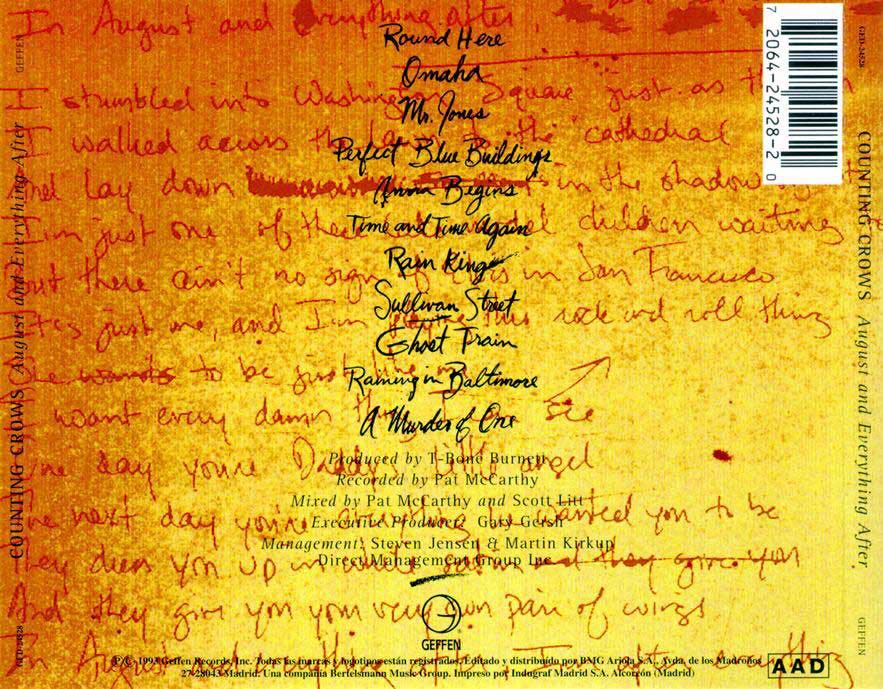 In August and Everything after
Round Here
Omaha
I stumbled into Washington Square just as the
Mr. Jones
I walked across the the cathedral
Perfect Blue Buildings
And lay down in the shadow
Anna Begins
I'm just one of these children waiting
Time and Time Again
Rain King
But there ain't no sign of in San Francisco
Sullivan Street
It's just me, and I'm this rock and roll thing
Ghost Train
She wants to be just like
Raining in Baltimore
I want every damn thing I see
A Murder of One
One day you're Daddy's little angel
Produced by T-Bone Burnett
Recorded by Pat McCarthy
Mixed by Pat McCarthy and Scott Litt
The next day you're wanted you to be
Executive Producer: Gary Gersh
Management: Steven Jensen & Martin Kirkup
They dress you up in white satin and they give you
Direct Management Group Inc.
And they give you your very own pair of wings
GEFFEN
In August and everything
P/C 1993 Geffen Records, Inc. Todas las marcas y logotipos están registrados. Editado y distribuido por BMG Ariola S.A., Avda. de los Madroños
27-28043 Madrid. Una compañía Bertelsmann Music Group. Impreso por Indugraf Madrid S.A. Alcorcón (Madrid)
AAD
7 2064-24528-2 0
GED 24528
COUNTING CROWS August and Everything After
GEFFEN
GED 24528
COUNTING CROWS August and Everything After
GEFFEN